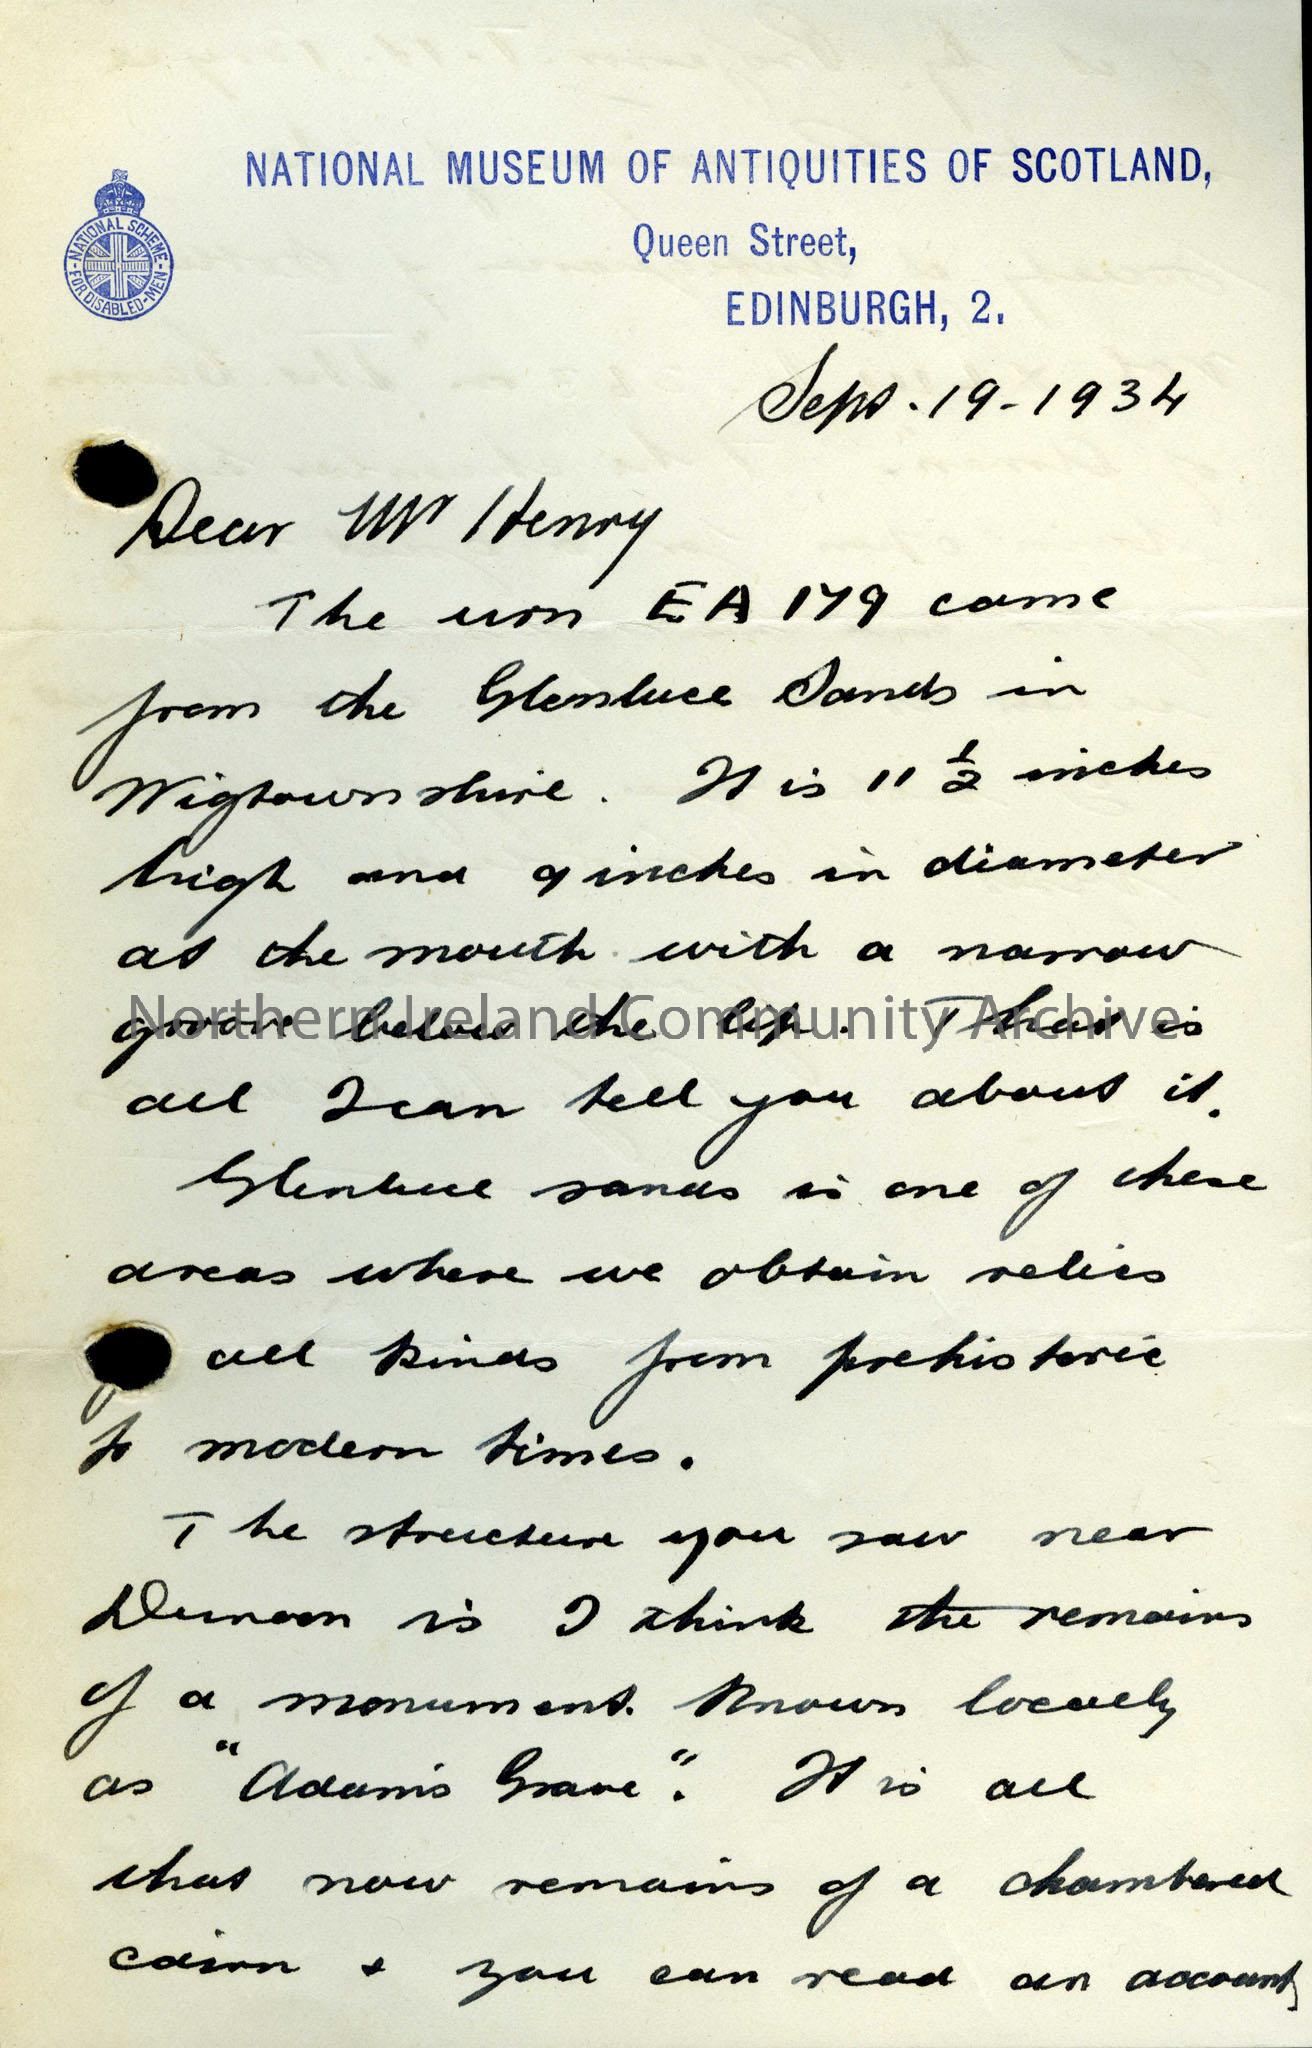 NATIONAL MUSEUM OF ANTIQUITIES OF SCOTLAND,
Queen Street,
EDINBURGH, 2.
NATIONAL SCHEME
FOR DISABLED MEN
Sept. 19-1934
Dear Mr Henry
The urn EA 179 came
from the Glenluce Sands in
Wigtownshire. It is 11 1/2 inches
high and 9 inches in diameter
at the mouth with a narrow
groove below the lip. That is
Northern Ireland Community Archive
all I can tell you about it.
Glenluce sands is one of these
areas where we obtain relics
all kinds from prehistoric
to modern times.
The structure you saw near
Dunoon is I think the remains
of a monument known locally
as "Adam's Grave". It is all
that now remains of a chambered
cairn & you can read an account